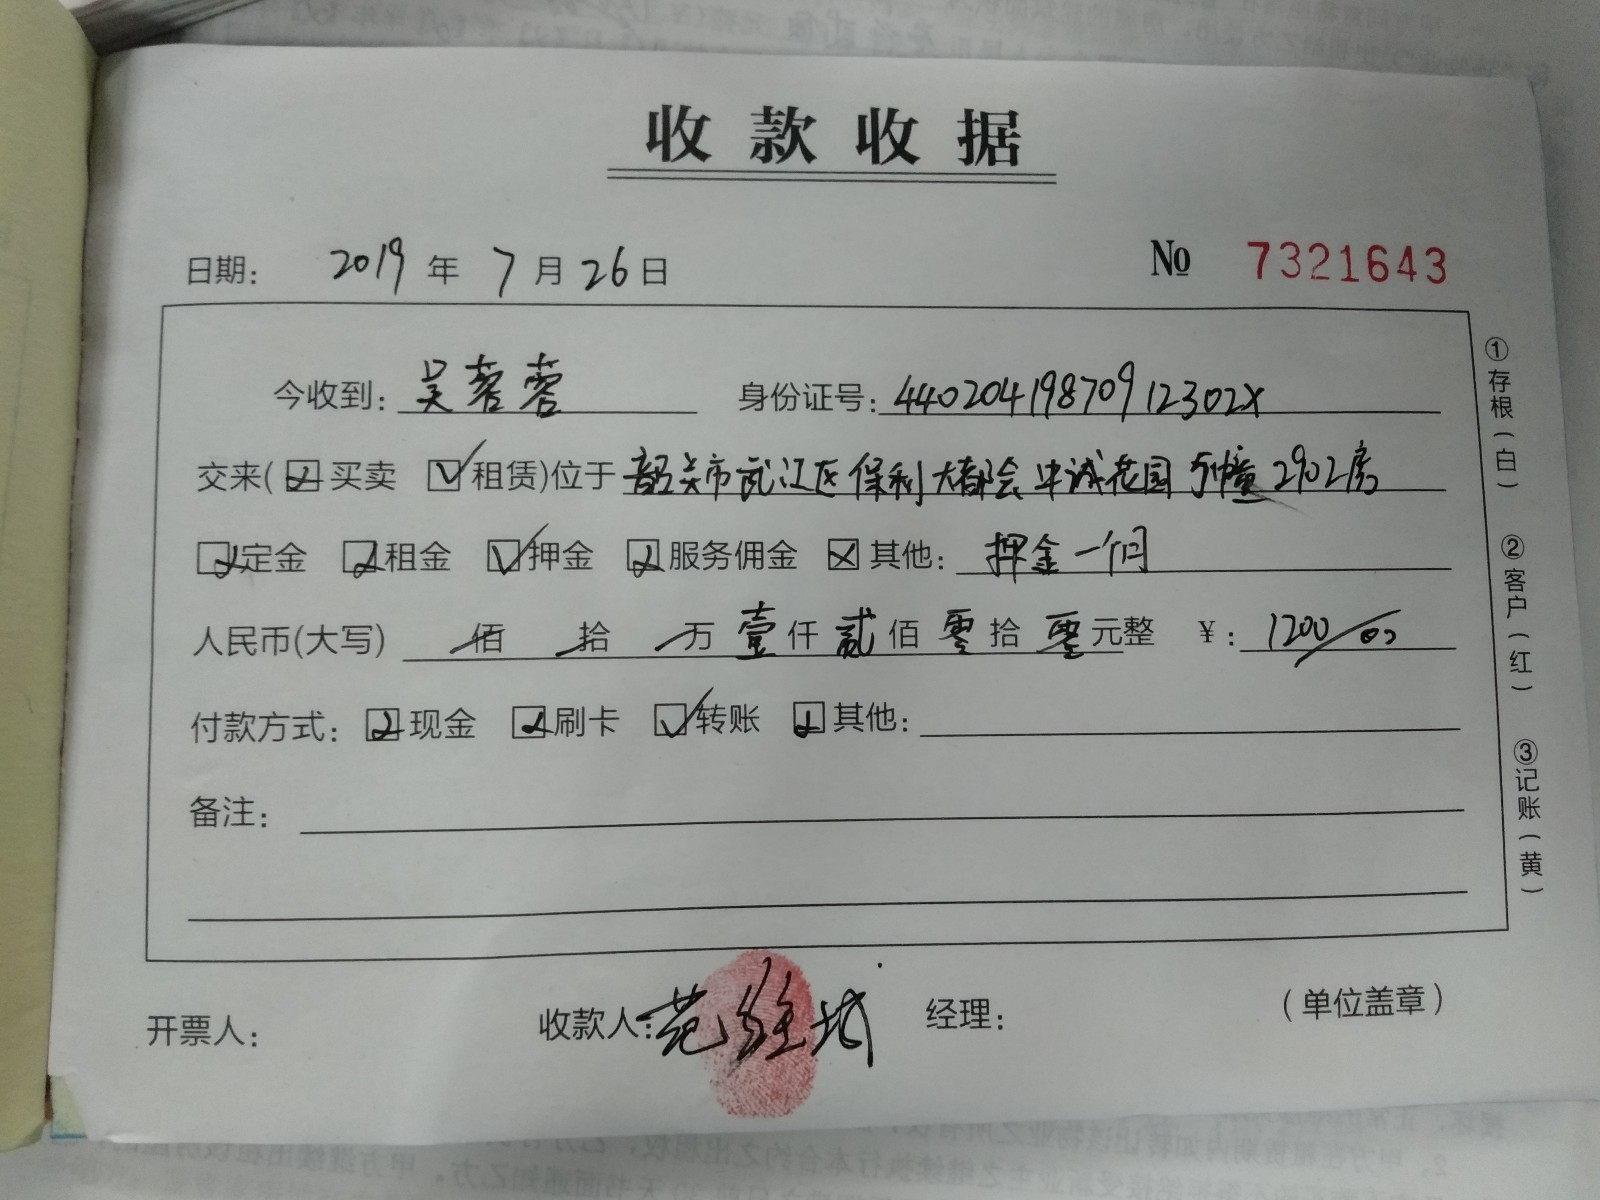 收款收据
日期： 2019 年 7 月 26 日
№ 7321643
今收到： 吴蓉蓉 身份证号： 44020419870912302X
交来( 买卖 租赁)位于 韶关市武江区保利大都会中诚花园 5幢 2902房
定金 租金 押金 服务佣金 其他： 押金一个月
人民币(大写) 佰 拾 万 壹 仟 贰 佰 零 拾 零 元整 ￥： 1200/00
付款方式： 现金 刷卡 转账 其他：
备注：
开票人： 收款人： 经理： (单位盖章)
①存根(白) ②客户(红) ③记账(黄)